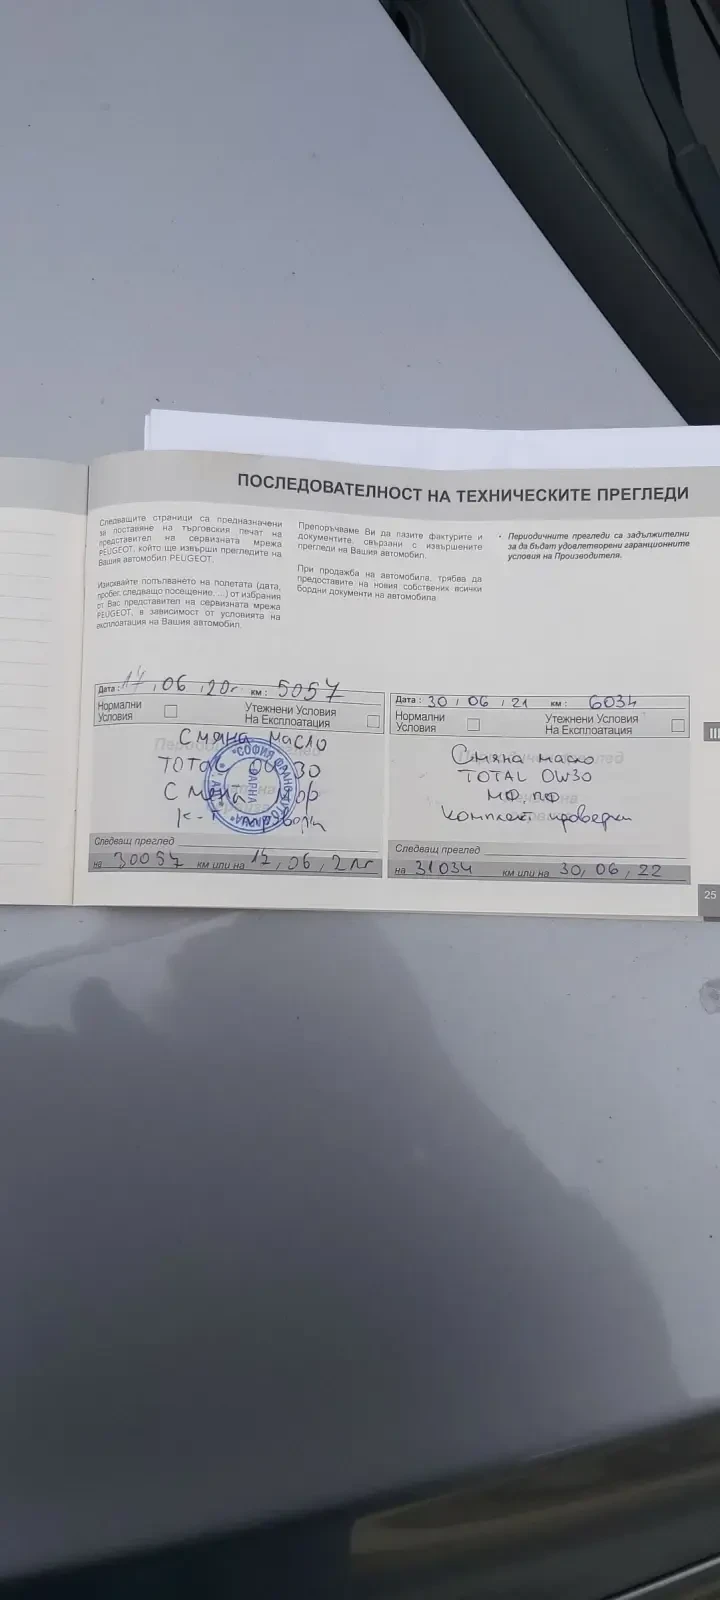 ПОСЛЕДОВАТЕЛНОСТ НА ТЕХНИЧЕСКИТЕ ПРЕГЛЕДИ
Следващите страници са предназначени
за поставяне на търговския печат на
представител на сервизната мрежа
PEUGEOT, който ще извърши прегледите на
Вашия автомобил PEUGEOT.
Изисквайте попълването на полетата (дата,
пробег, следващо посещение, ...) от избрания
от Вас представител на сервизната мрежа
PEUGEOT, в зависимост от условията на
експлоатация на Вашия автомобил.
Препоръчваме Ви да пазите фактурите и
документите, свързани с извършените
прегледи на Вашия автомобил.
При продажба на автомобила, трябва да
предоставите на новия собственик всички
бордни документи на автомобила.
• Периодичните прегледи са задължителни
за да бъдат удовлетворени гаранционните
условия на Производителя.
Дата: 17, 06, 20г км: 5057
Нормални
Условия
Утежнени Условия
На Експлоатация
Смяна масло
TOTAL 0W30
Смяна
к-т проверки
ВАРНА
Следващ преглед
на 30057 км или на 17, 06, 21г
Дата: 30, 06, 21 км: 6034
Нормални
Условия
Утежнени Условия
На Експлоатация
Смяна масло
TOTAL 0W30
МФ, ПФ
Комплект проверки
Следващ преглед
на 31034 км или на 30, 06, 22
III
25